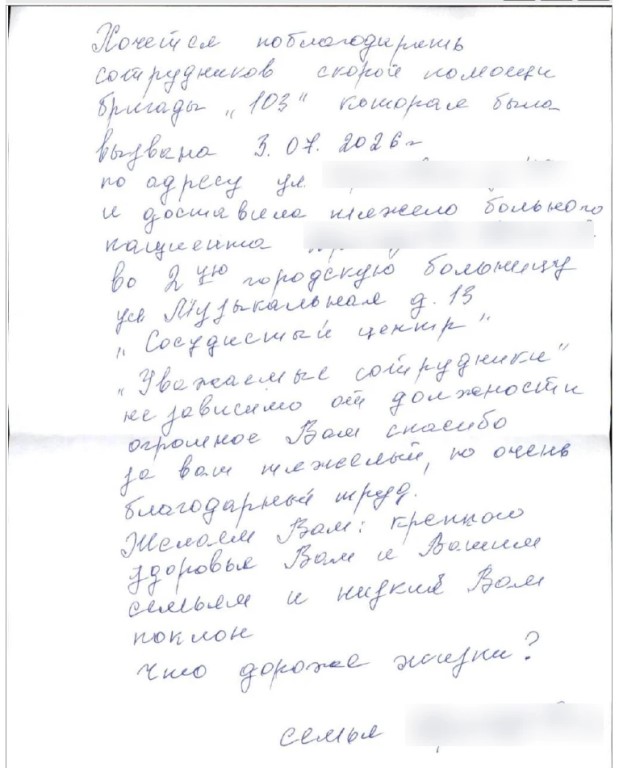 Хочется поблагодарить
сотрудников скорой помощи
бригады "103" которая была
вызвана 3.07.2026г
по адресу ул
и доставила тяжело больного
пациента
во 2ую городскую больницу
ул Музыкальная д. 13
"Сосудистый центр"
"Уважаемые сотрудники"
не зависимо от должности
огромное Вам спасибо
за ваш тяжелый, но очень
благодарный труд.
Желаем Вам: крепкого
здоровья Вам и Вашим
семьям и низкий Вам
поклон
Что дороже жизни?
семья